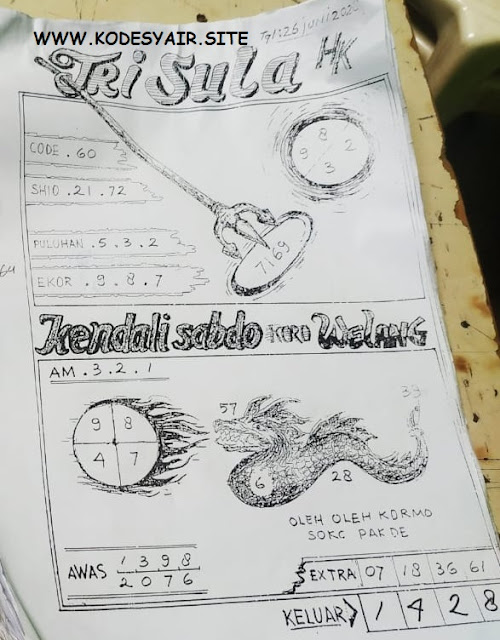 WWW.KODESYAIR.SITE
Tri Sula HK
CODE . 60
SHIO . 21 . 72
PULUHAN . 5 . 3 . 2
EKOR . 9 . 8 . 7
8
9 2
3
7169
Kendali sabdo KORO WELANG
AM . 3 . 2 . 1
9 8
4 7
57
6
28
OLEH OLEH KORMO
SOKO PAKDE
AWAS 1 3 9 8
2 0 7 6
EXTRA 07 18 36 61
KELUAR 1 4 2 8